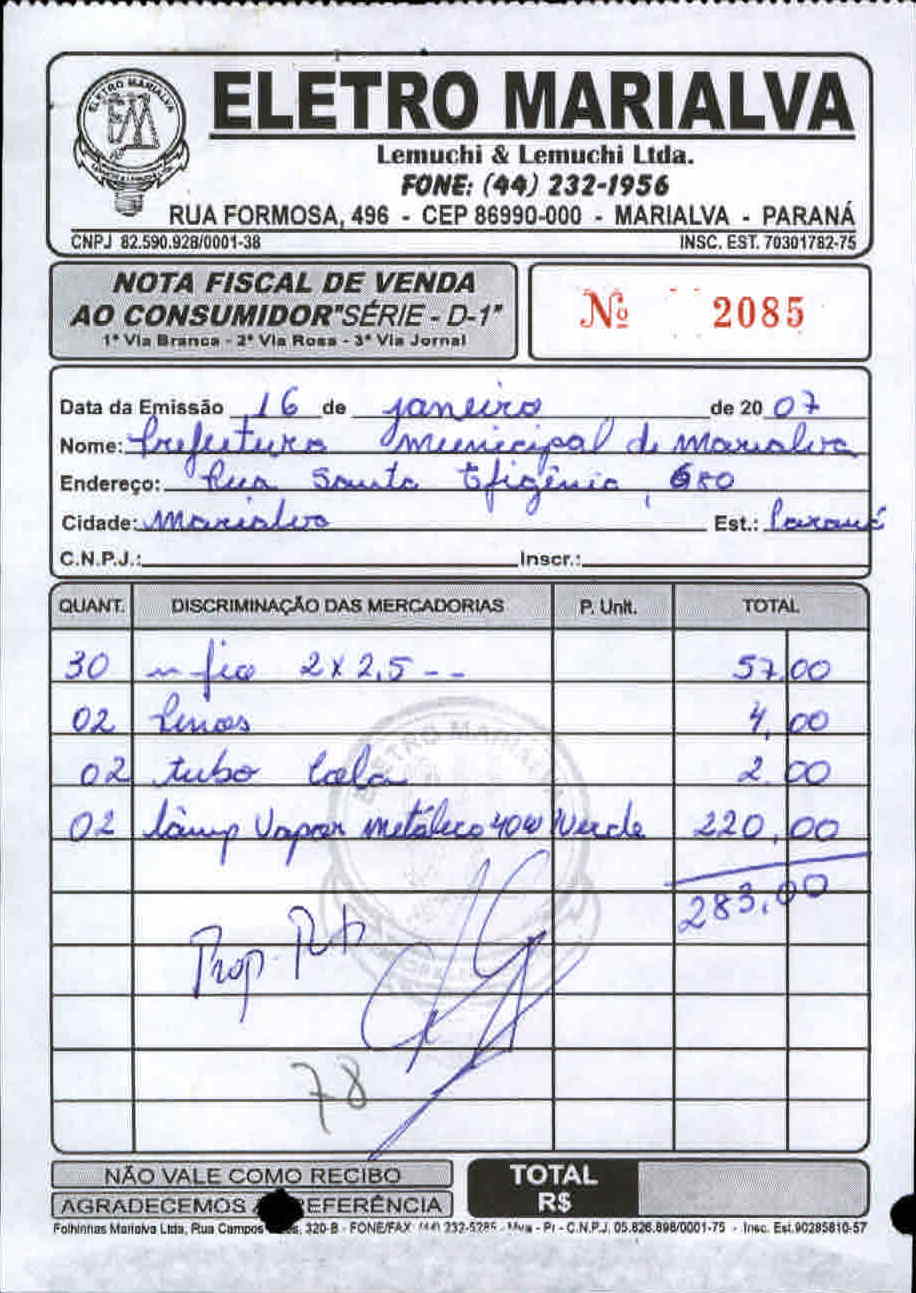 ELETRO MARIALVA
Lemuchi & Lemuchi Ltda.
FONE: (44) 232-1956
RUA FORMOSA, 496 - CEP 86990-000 - MARIALVA - PARANÁ
CNPJ 82.590.928/0001-38 INSC. EST. 70301782-75
NOTA FISCAL DE VENDA
AO CONSUMIDOR"SÉRIE - D-1"
1ª Via Branca - 2ª Via Rosa - 3ª Via Jornal
Nº 2085
Data da Emissão 16 de janeiro de 20 07
Nome: Prefeitura Municipal de Marialva
Endereço: Rua Santa Efigênia, 680
Cidade: Marialva Est.: Paraná
C.N.P.J.: Inscr.:
QUANT. DISCRIMINAÇÃO DAS MERCADORIAS P. Unit. TOTAL
30 m fio 2 x 2,5 -- 57,00
02 4,00
02 tubo cola 2,00
02 lâmp Vapor metálico 400 Verde 220,00
283,00
Prop.
78
NÃO VALE COMO RECIBO
AGRADECEMOS
TOTAL
R$
Folhinhas Marialva Ltda, Rua Campos 320-B - FONE/FAX (44) 232-5285 - Mva - Pr - C.N.P.J. 05.826.898/0001-75 - Insc. Est.90285810-57